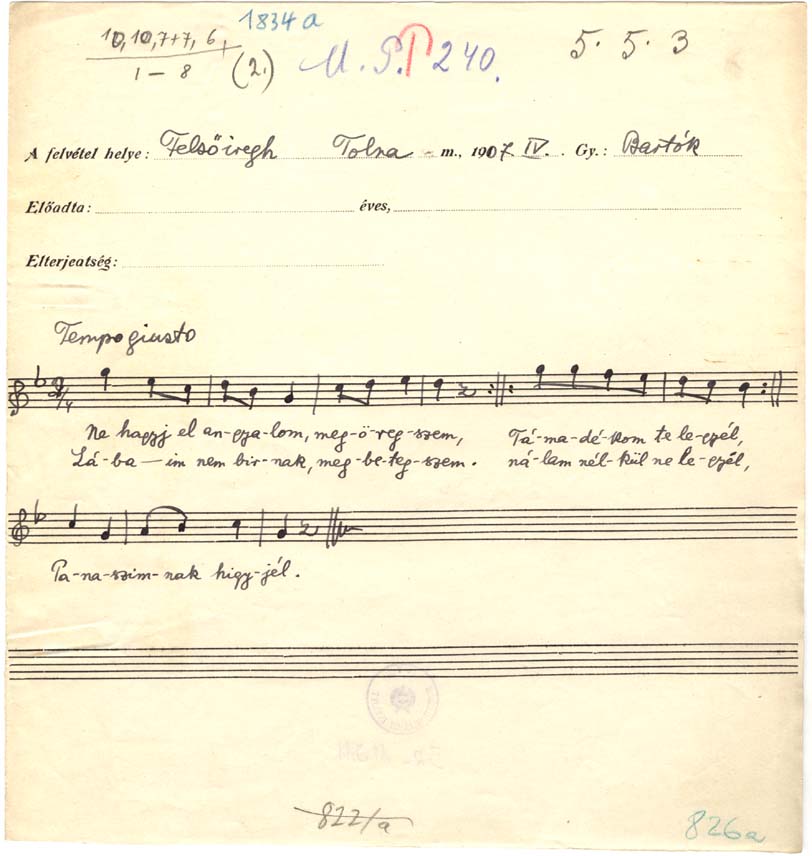 1834a
10, 10, 7+7, 6,
1 – 8
(2.)
M. P. 240.
5. 5. 3
A felvétel helye: Felsőiregh Tolna m., 1907. IV. Gy.: Bartók
Előadta: éves,
Elterjedtség:
Tempo giusto
2/4
Ne hagyj el an-gya-lom, meg-ö-reg-szem, Tá-ma-dé-kom te le-gyél,
Lá-ba-im nem bir-nak, meg-be-teg-szem. ná-lam nél-kül ne le-gyél,
Pa-na-szim-nak higy-jél.
822/a
826a